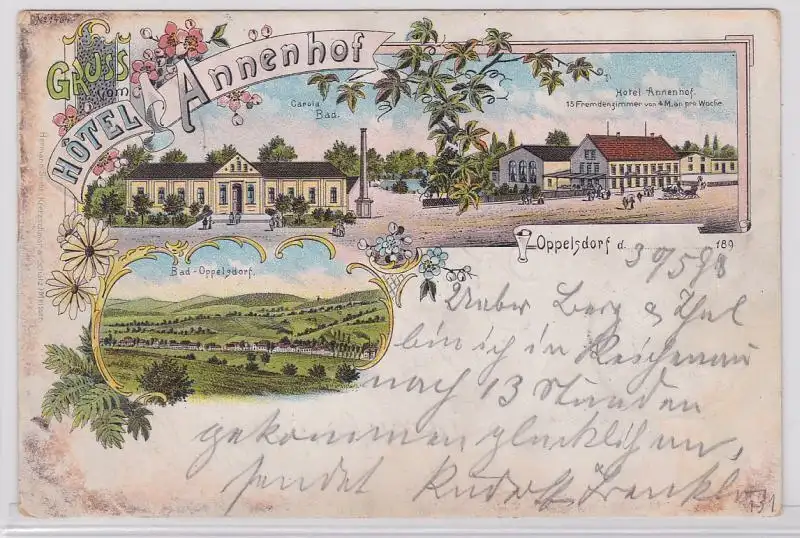 GRUSS
vom
HÔTEL ANNENHOF
Carola
Bad.
Hotel Annenhof.
15 Fremdenzimmer von 4 M. an pro Woche.
Bad-Oppelsdorf.
Oppelsdorf d. 30/5 98
189
Ueber Berg & Thal
bin ich in Reichenau
nach 13 Stunden
gekommen glücklich an,
sendet Rudolf